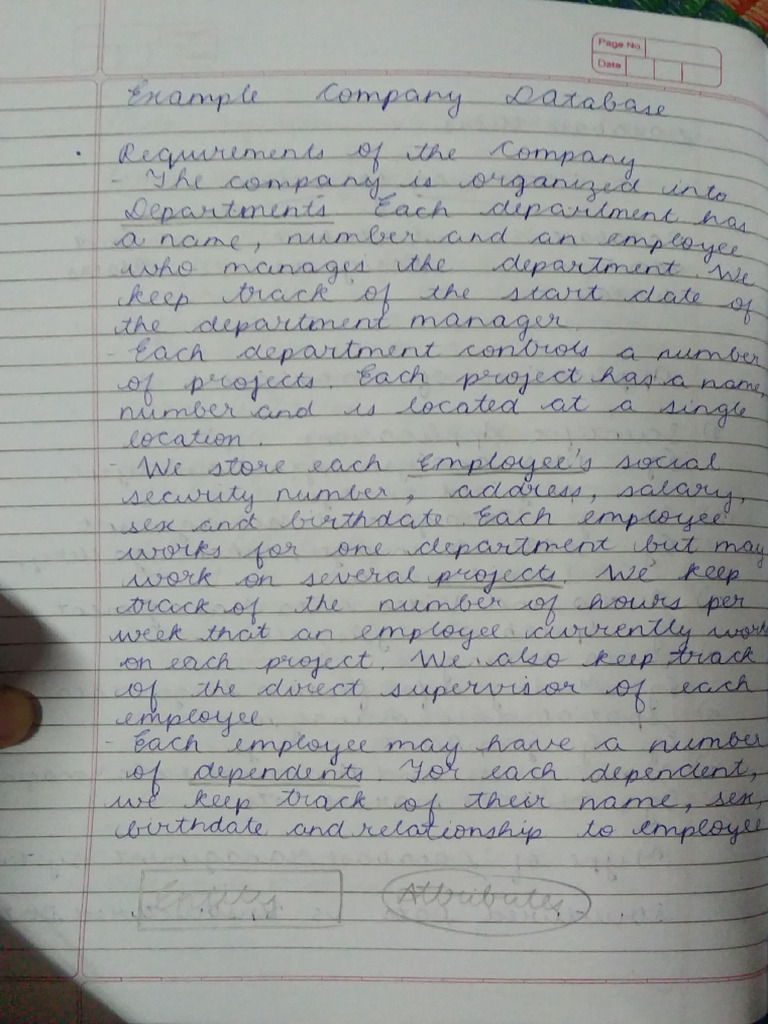 Page No.
Date
Example Company Database
• Requirements of the Company
- The company is organized into
Departments Each department has
a name, number and an employee
who manages the department. We
keep track of the start date of
the department manager.
- Each department controls a number
of projects. Each project has a name,
number and is located at a single
location.
- We store each employee's social
security number, address, salary,
sex and birthdate. Each employee
works for one department but may
work on several projects. We keep
track of the number of hours per
week that an employee currently work
on each project. We also keep track
of the direct supervisor of each
employee.
- Each employee may have a number
of dependents. For each dependent,
we keep track of their name, sex,
birthdate and relationship to employee
Attributes